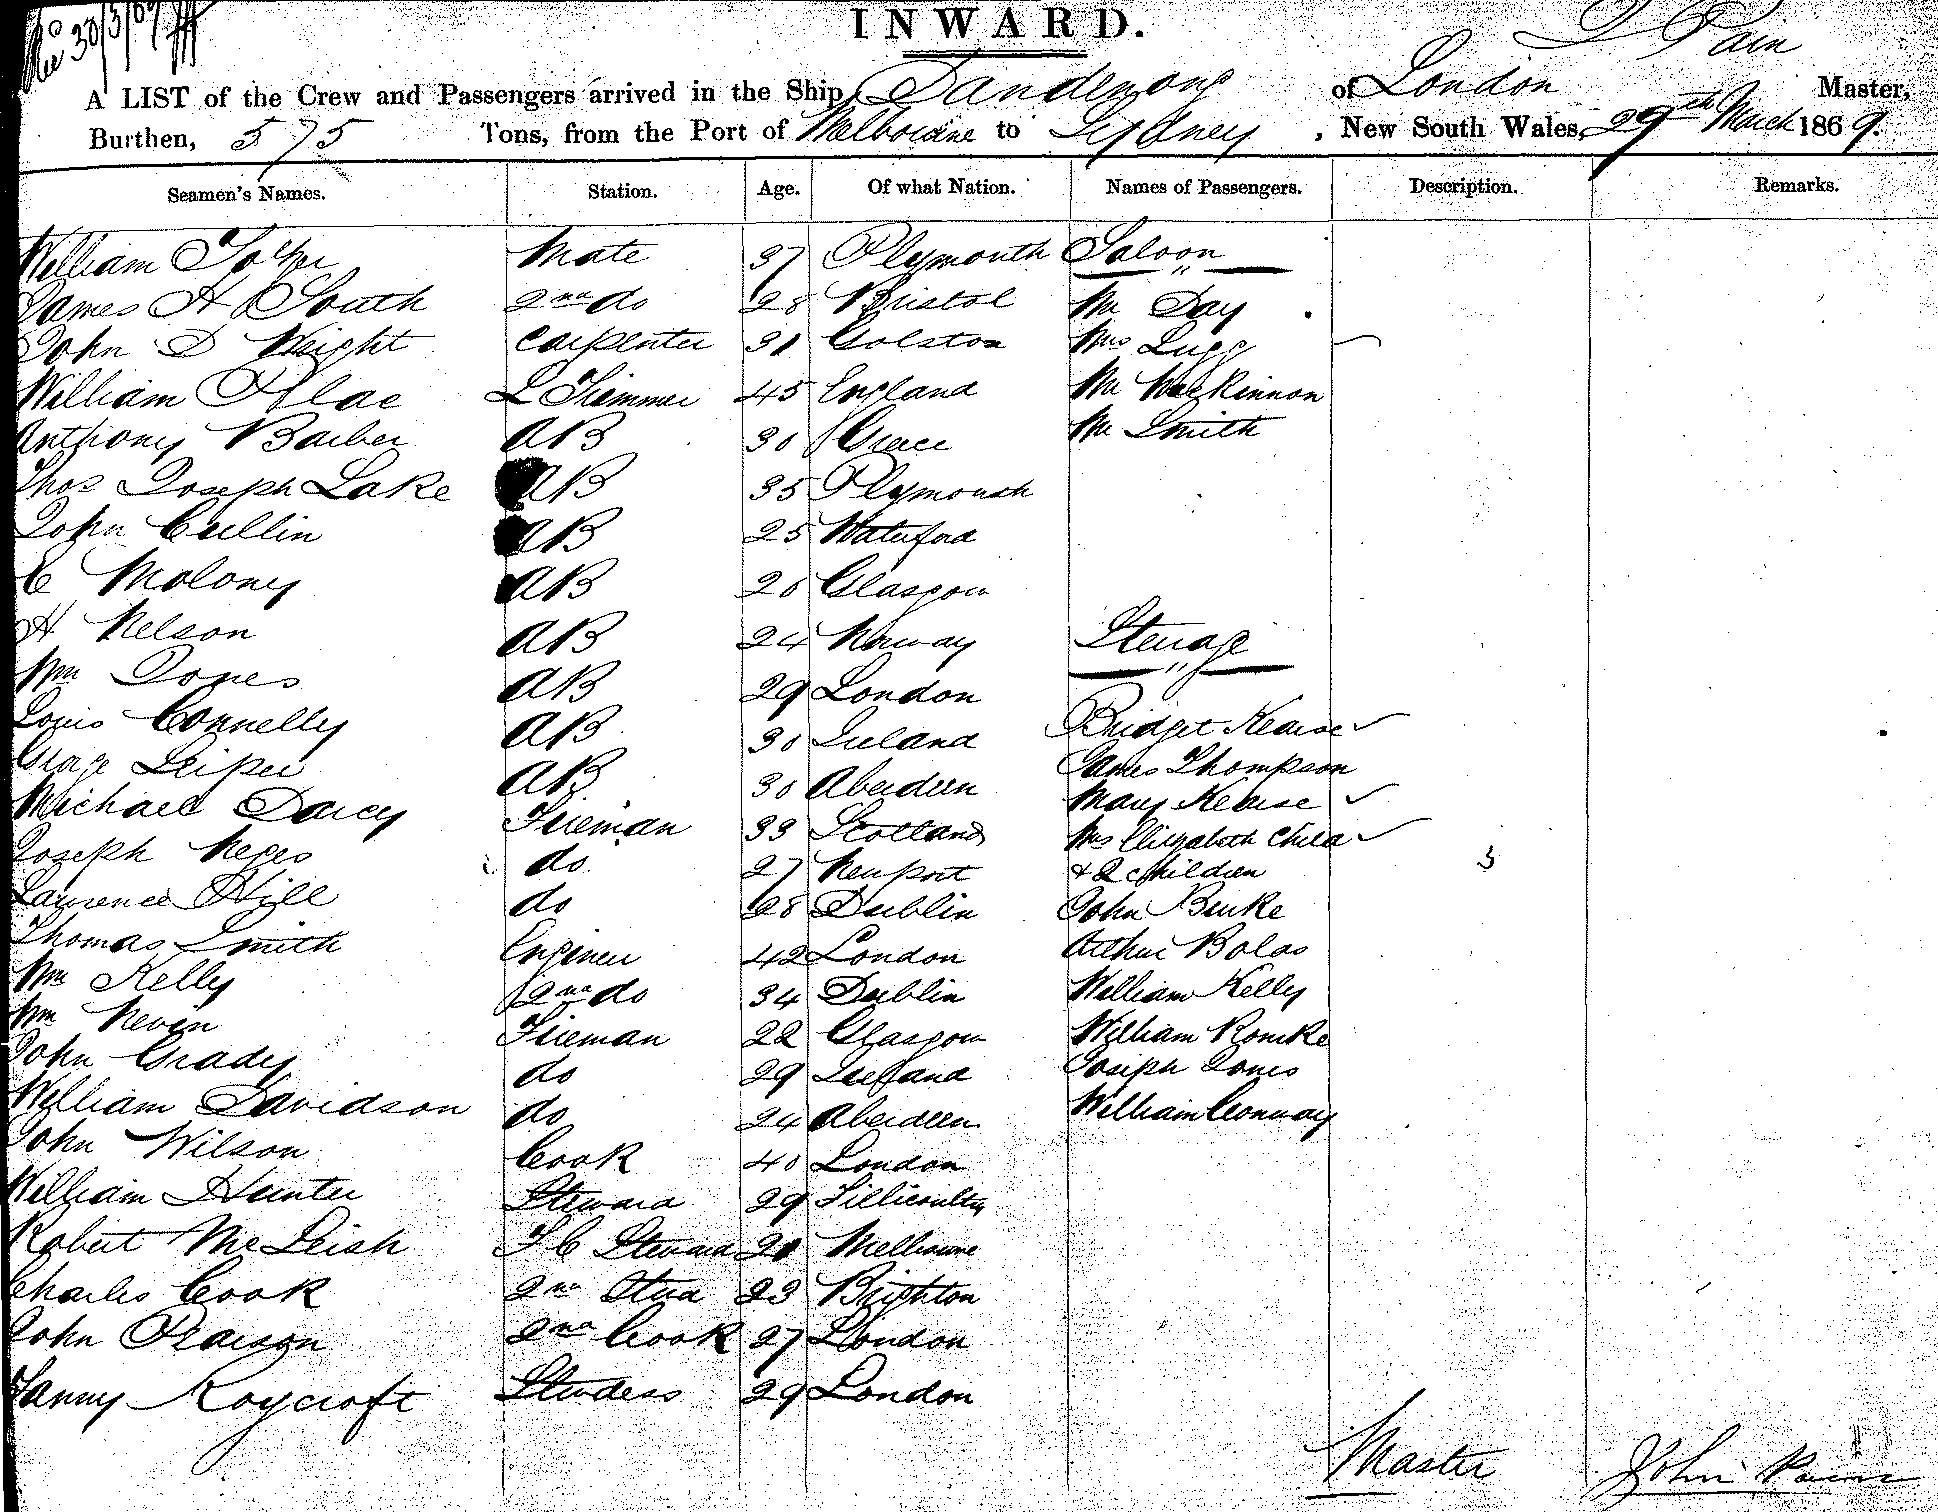 Rec 30/3/69
INWARD.
J Pain
A LIST of the Crew and Passengers arrived in the Ship Dandenong of London Master,
Burthen, 575 Tons, from the Port of Melbourne to Sydney, New South Wales, 29th March 1869.
Seamen's Names. Station. Age. Of what Nation. Names of Passengers. Description. Remarks.
William Mate 37 Plymouth Saloon
James H South 2nd do 28 Bristol Mr Day
John D Weight Carpenter 31 Colston Mrs Lugg
William L Trimmer 45 England Mr MacKinnon
Anthony Barber AB 30 Greece Mr Smith
Thos Joseph Lake AB 35 Plymouth
John Cullin AB 25 Waterford
C Moloney AB 20 Glasgow
H Nelson AB 24 Norway Sterrage
Wm Jones AB 29 London
Louis Connelly AB 30 Ireland Bridget Kearse
George Leiper AB 30 Aberdeen James Thompson
Michael Darcy Fireman 33 Scotland Mary Kearse
Joseph do 27 Newport Mrs Elizabeth Child
Lawrence Hill do 28 Dublin & 2 children 3
Thomas Smith Engineer 42 London John Burke
Wm Kelly 2nd do 34 Dublin Arthur Bolas
Wm Nevin Fireman 22 Glasgow William Kelly
John Grady do 29 Ireland William Romke
William Davidson do 24 Aberdeen Joseph Jones
John Wilson Cook 40 London William Conway
William Hunter Steward 29 Tillicoultry
Robert McLeish F C Steward 20 Melbourne
Charles Cook 2nd Stwd 23 Brighton
John Pearson 2nd Cook 27 London
Fanny Roycroft Stwdess 29 London
Master John Paine